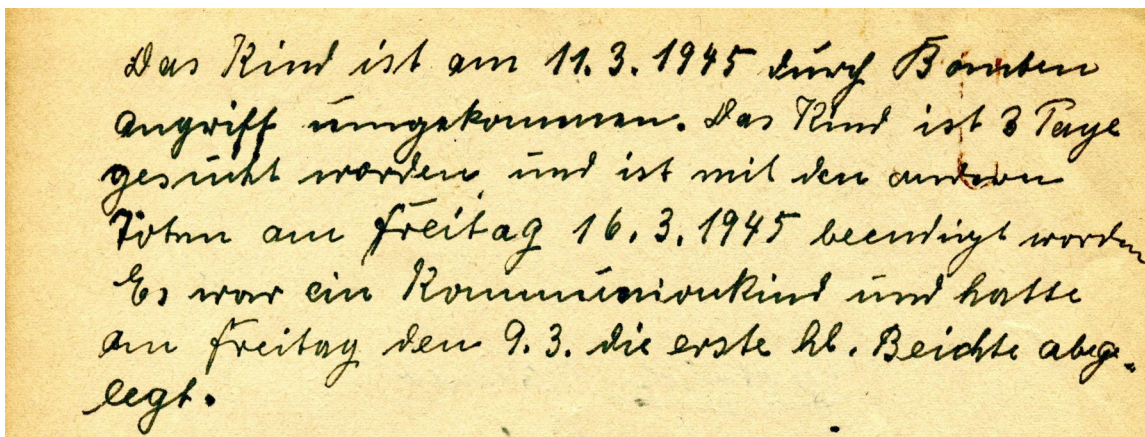 Das Kind ist am 11.3.1945 durch Bomben
angriff umgekommen. Das Kind ist 3 Tage
gesucht worden und ist mit den andern
Toten am Freitag 16.3.1945 beerdigt worden
Es war ein Kommunionkind und hatte
am Freitag den 9.3. die erste hl. Beichte abge-
legt.